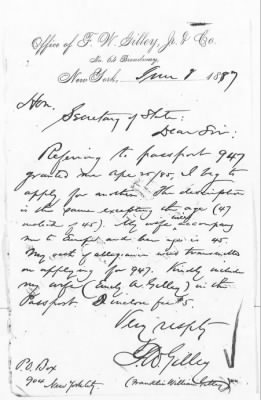 Office of F. W. Gilley, Jr. & Co.
No. 64 Broadway,
New York, June 8 1887
Hon.
Secretary of State:
Dear Sir:
Referring to passport 947
granted me Apl 20/85, I beg to
apply for another. The description
is the same excepting the age (47
instead of 45). My wife will accompany
me to Europe and her age is 45.
My oath of allegiance was transmitted
on applying for 947. Kindly include
my wife (A Gilley) in the
Passport. I inclose fee $5.
Very resptly
Gilley
P.O. Box
New York City
(Franklin William Gilley)